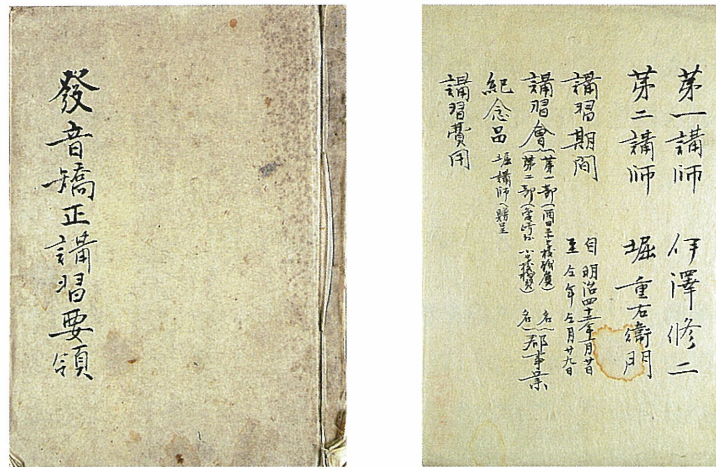 發音矯正講習要領
第一講師 伊澤修二
第二講師 堀重右衞門
講習期間 自明治四十三年 月廿日
至仝年仝月廿九日
講習會 第一部 名 郡事業
第二部 名
紀念品 堀講師ヘ贈呈
講習費用